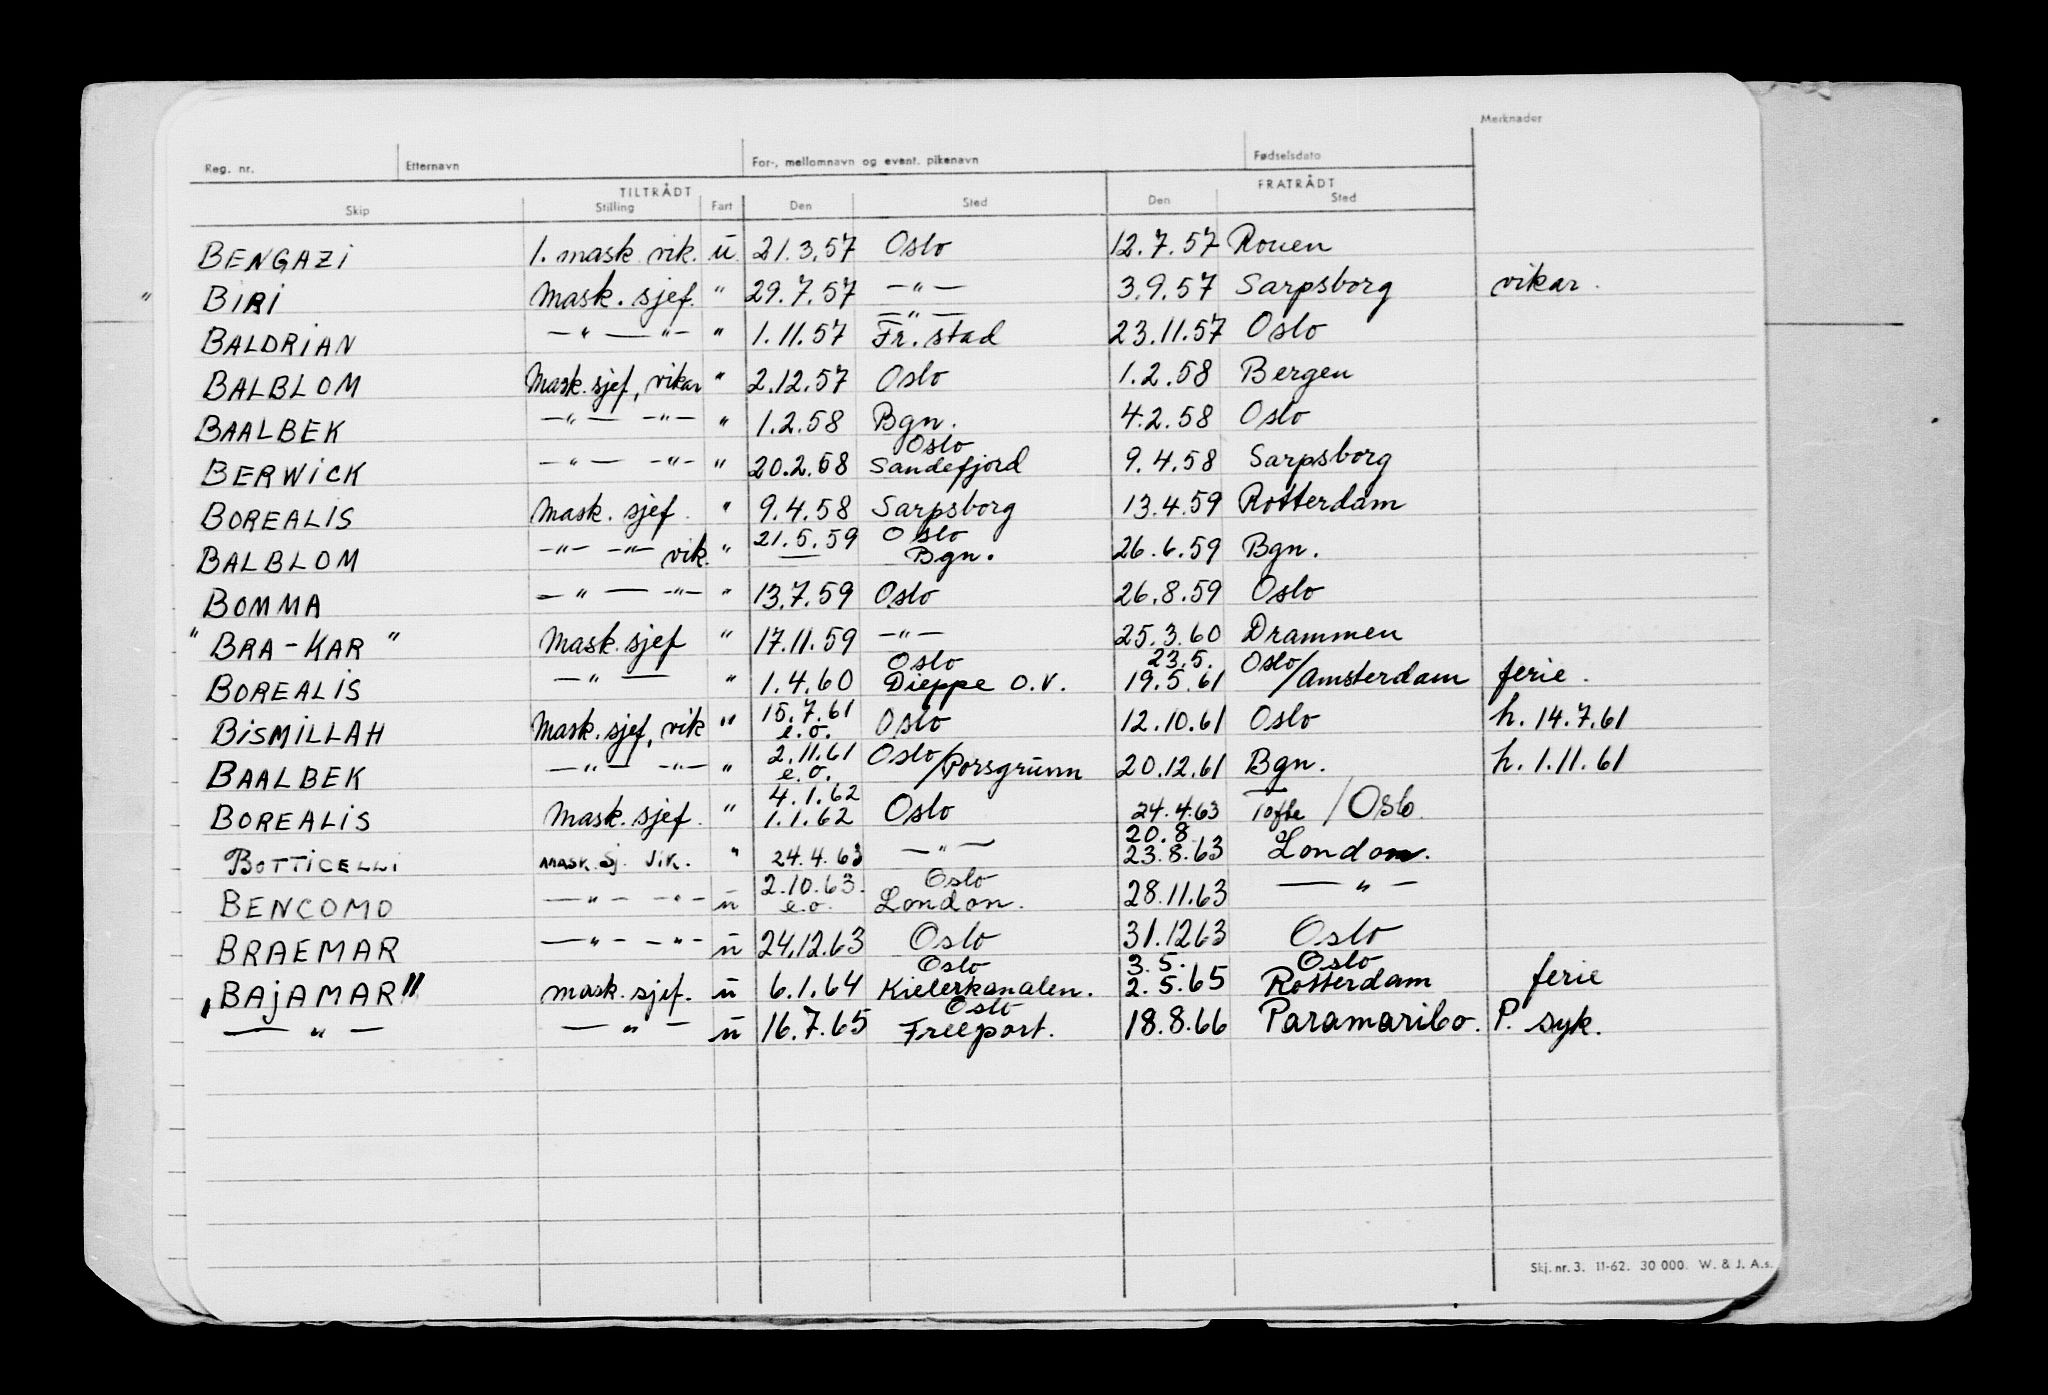 Merknader
Reg. nr. Etternavn For-, mellomnavn og event. pikenavn Fødselsdato
TILTRÅDT FRATRÅDT
Skip Stilling Fart Den Sted Den Sted
BENGAZI 1. mask vik. ū 21.3.57 Oslo 12.7.57 Rouen
" BIRI Mask. sjef. " 29.7.57 —"— 3.9.57 Sarpsborg vikar.
BALDRIAN —"— —"— " 1.11.57 —"— Fr.stad 23.11.57 Oslo
BALBLOM Mask. sjef, vikar " 2.12.57 Oslo 1.2.58 Bergen
BAALBEK —"— —"— " 1.2.58 Bgn. 4.2.58 Oslo
BERWICK —"— —"— " 20.2.58 Oslo Sandefjord 9.4.58 Sarpsborg
BOREALIS Mask. sjef. " 9.4.58 Sarpsborg 13.4.59 Rotterdam
BALBLOM —"— —"— vik. " 21.5.59 — Oslo Bgn. 26.6.59 Bgn.
BOMMA —"— —"— " 13.7.59 Oslo 26.8.59 Oslo
"BRA-KAR" Mask. sjef " 17.11.59 —"— 25.3.60 Drammen
BOREALIS —"— " 1.4.60 Oslo Dieppe O.V. 23.5. 19.5.61 Oslo/Amsterdam ferie.
BISMILLAH Mask. sjef, vik " 15.7.61 e.o. Oslo 12.10.61 Oslo h. 14.7.61
BAALBEK —"— —"— " 2.11.61 e.o. Oslo/Porsgrunn 20.12.61 Bgn. h. 1.11.61
BOREALIS Mask. sjef. " 4.1.62 1.1.62 Oslo 24.4.63 Tofte / Oslo.
BOTTICELLI MASK. Sj. VIK. " 24.4.63 —"— 20.8 23.8.63 London.
BENCOMO —"— —"— ū 2.10.63. e.o. Oslo London. 28.11.63 —"—
BRAEMAR —"— —"— ū 24.12.63 Oslo 31.1263 Oslo
"BAJAMAR" mask. sjef. ū 6.1.64 Oslo Kielerkanalen. 3.5. 2.5.65 Oslo Rotterdam ferie
—"— —"— ū 16.7.65 Oslo Freeport. 18.8.66 Paramaribo. P. syk.
Skj. nr. 3. 11-62. 30 000. W. & J. A.s.